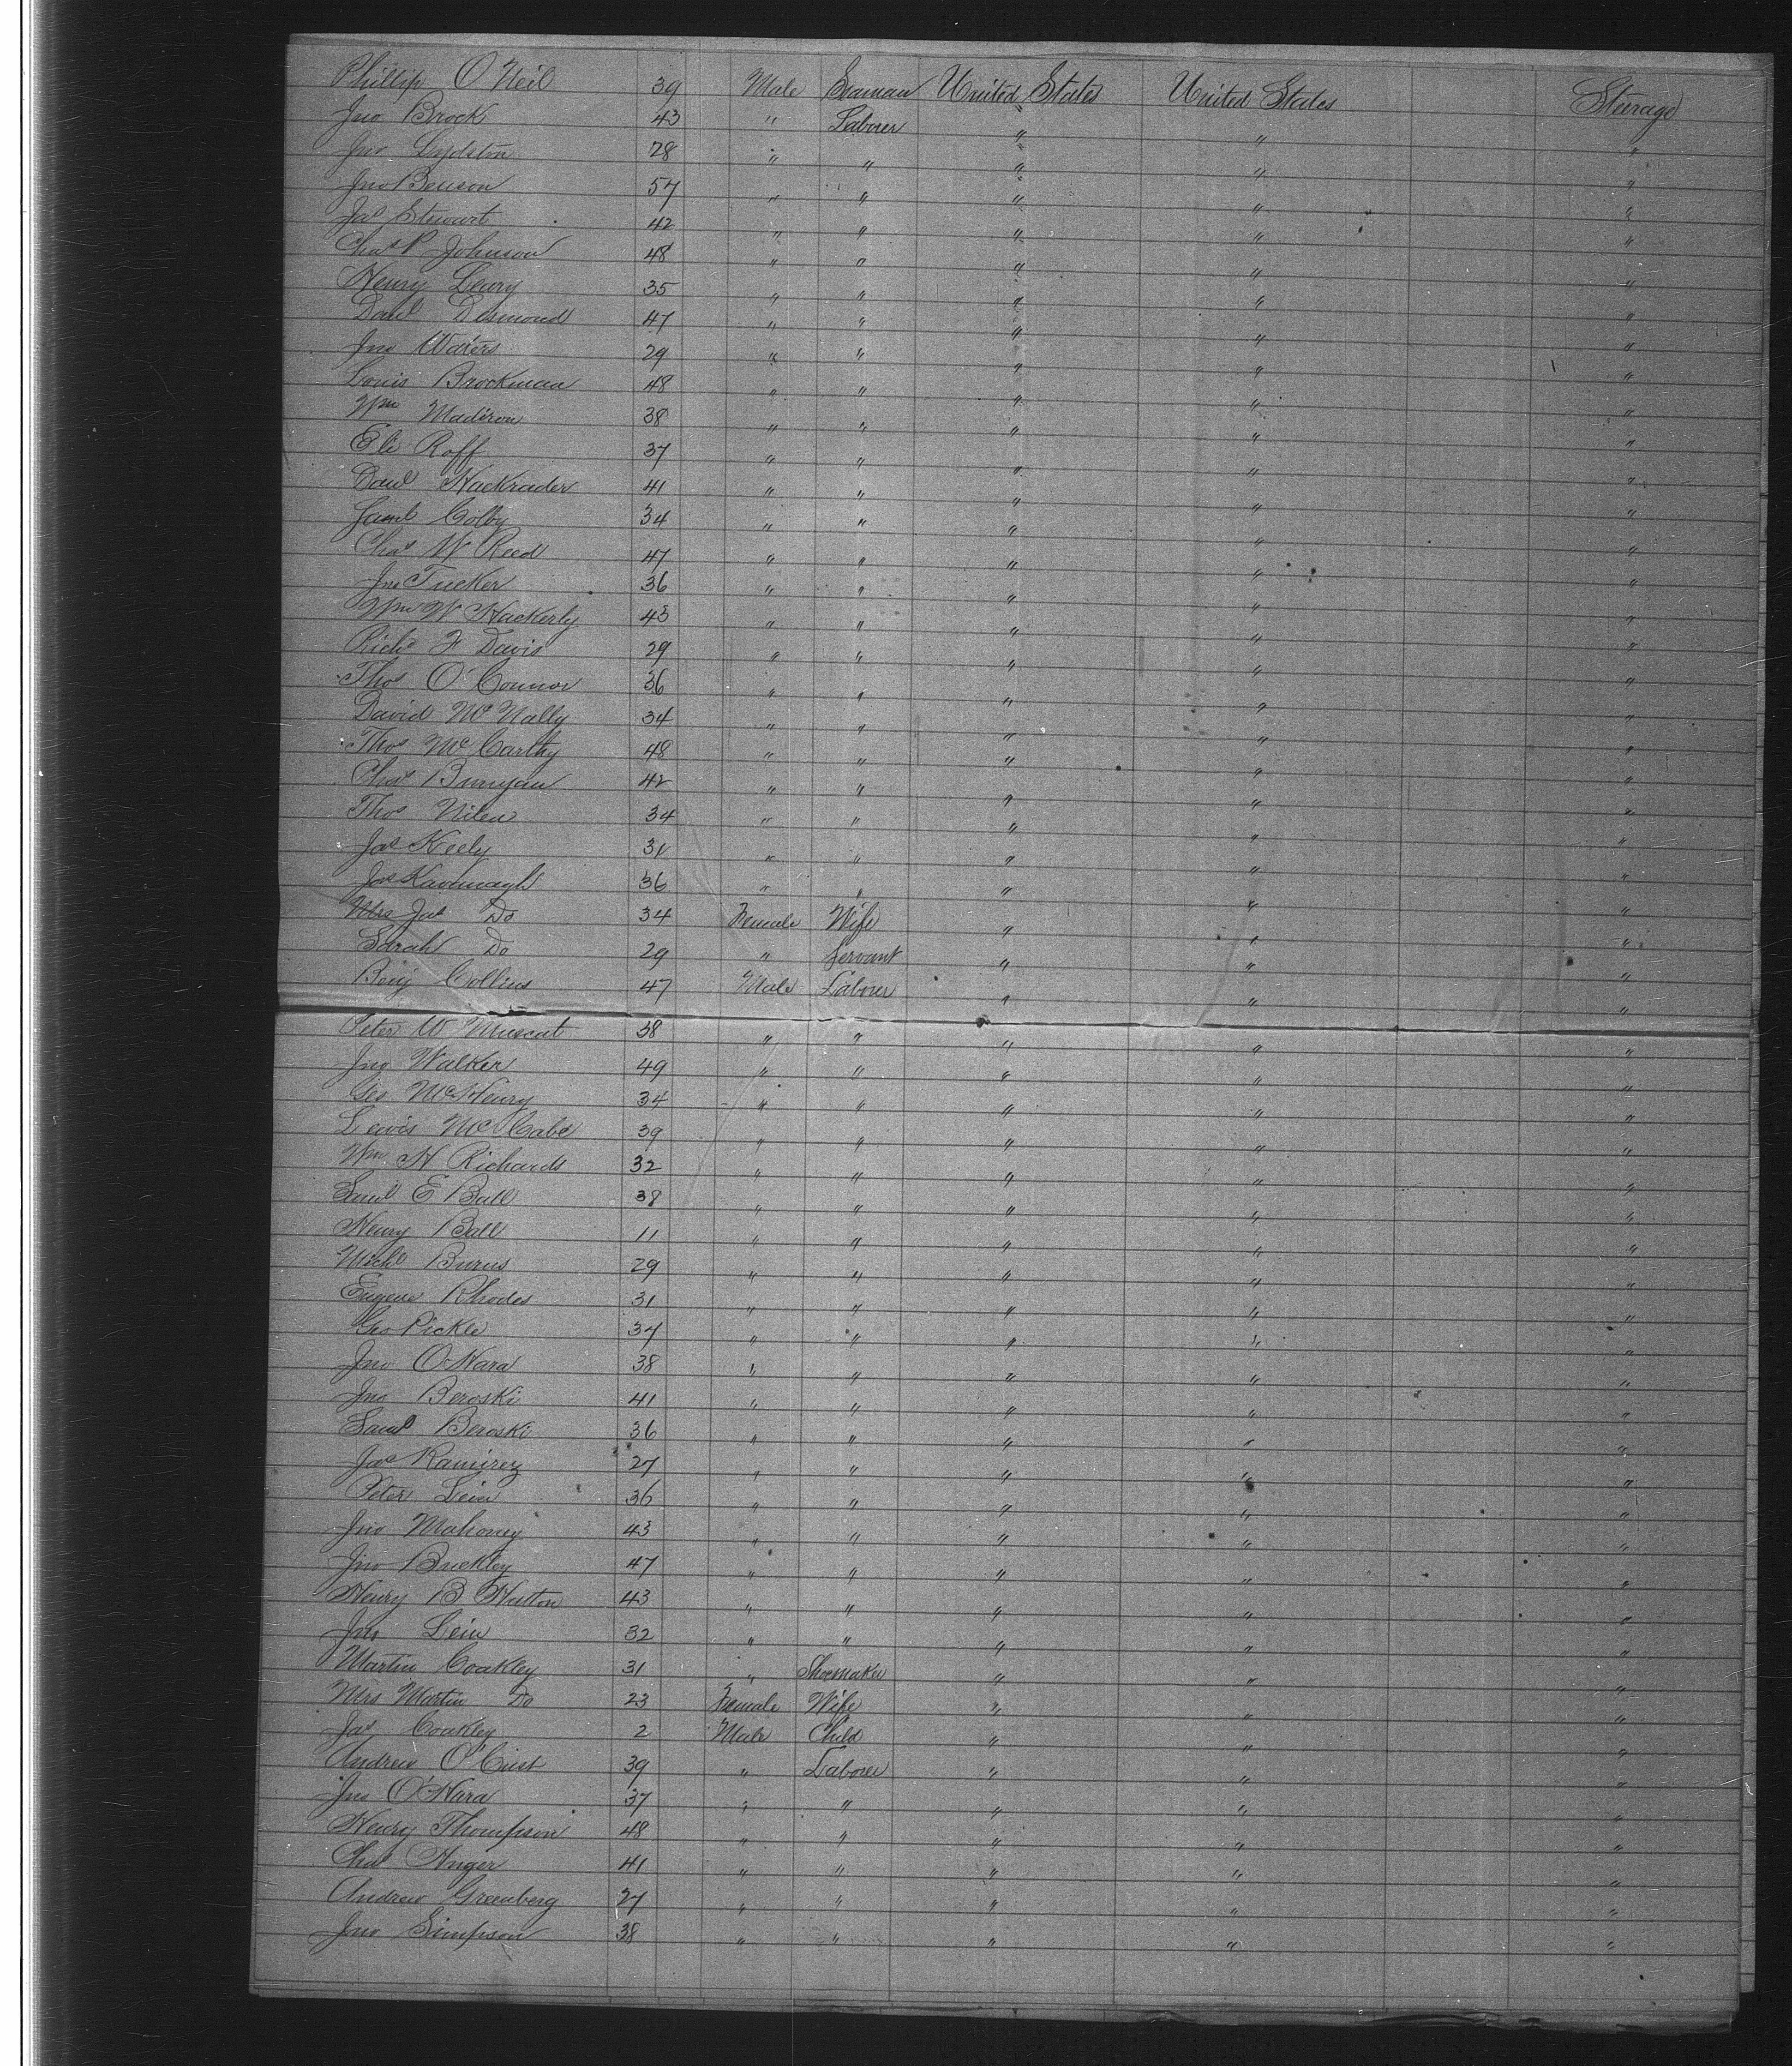 Phillip O'Neil 39 Male Seaman United States United States Steerage
Jno Brock 43 " Laborer " " "
Jno 28 " " " " "
Jno Benson 57 " " " " "
Jas Stewart 42 " " " " "
Chas P Johnson 48 " " " " "
Henry Leary 35 " " " " "
Danl Desmond 47 " " " " "
Jno Waters 29 " " " " "
Louis Brockman 48 " " " " "
Wm Madison 38 " " " " "
Eli Roff 37 " " " " "
Danl Hackrader 41 " " " " "
Saml Colby 34 " " " " "
Chas W Reed 47 " " " " "
Jno Tucker 36 " " " " "
Wm W Hackerly 43 " " " " "
Richd F Davis 29 " " " " "
Thos O'Connor 36 " " " " "
David McNally 34 " " " " "
Thos McCarthy 48 " " " " "
Chas Bunyan 42 " " " " "
Thos Nilen 34 " " " " "
Jas Keely 31 " " " " "
Jas Kavenagh 36 " " " " "
Mrs Jas Do 34 Female Wife " " "
Sarah Do 29 " Servant " " "
Benj Collins 47 Male Laborer " " "
Peter W Muscat 38 " " " " "
Jno Walker 49 " " " " "
Geo McHenry 34 " " " " "
Lewis McCabe 39 " " " " "
Wm H Richards 32 " " " " "
Saml E Ball 38 " " " " "
Henry Ball 11 " " " " "
Michl Burns 29 " " " " "
Eugene Rhodes 31 " " " " "
Geo Pickle 34 " " " " "
Jno O'Hara 38 " " " " "
Jno Beroski 41 " " " " "
Saml Beroski 36 " " " " "
Jas Ramirez 27 " " " " "
Peter Lein 36 " " " " "
Jno Mahoney 43 " " " " "
Jno Buckley 47 " " " " "
Henry B Hutton 43 " " " " "
Jno Lein 32 " " " " "
Martin Coakley 31 " Shoemaker " " "
Mrs Martin Do 23 Female Wife " " "
Jas Coakley 2 Male Child " " "
Andrew 39 " Laborer " " "
Jno O'Hara 37 " " " " "
Henry Thompson 48 " " " " "
Chas Anger 41 " " " " "
Andrew Greenberg 27 " " " " "
Jno Simpson 38 " " " " "